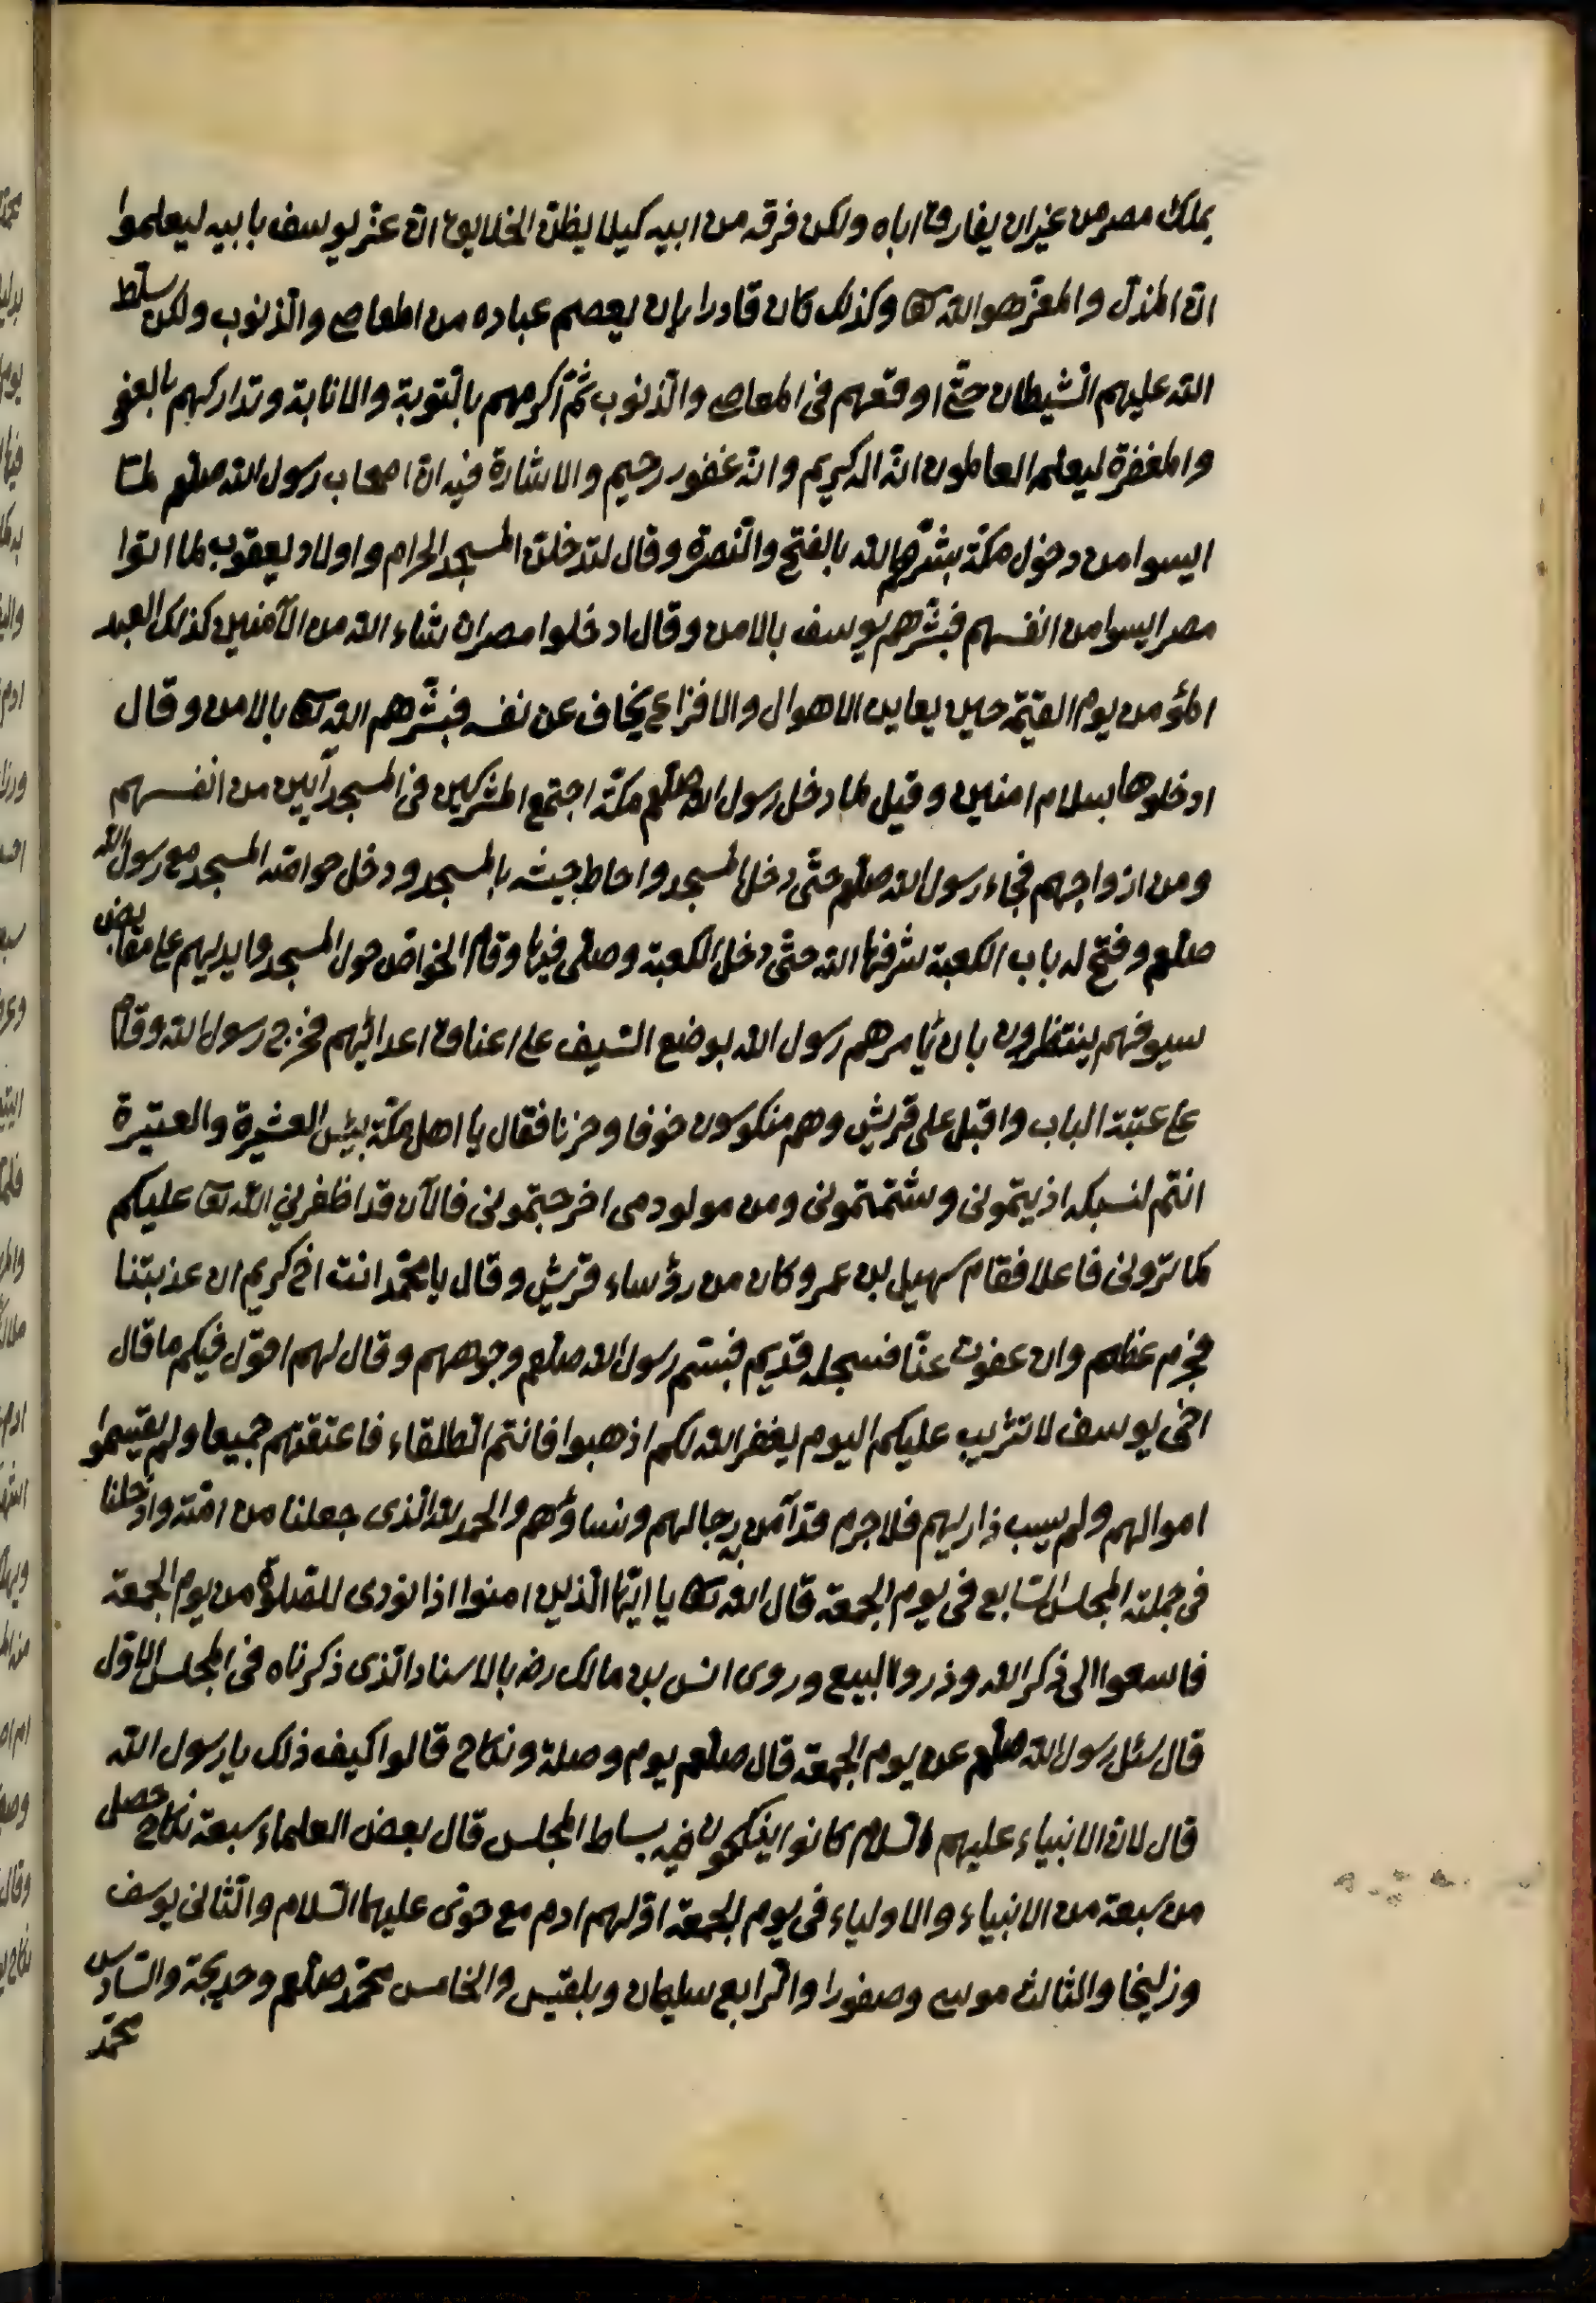 يملك مصر من غير ان يفارق اباه ولكن فرقه من ابيه كيلا يظن الخلايق ان عز يوسف بابيه ليعلموا
ان المذل والمعز هو الله تعا وكذلك كان قادرا بان يعصم عباده من المعاصى والذنوب ولكن سلط
الله عليهم الشيطان حتى اوقعهم فى المعاصى والذنوب ثم اكرمهم بالتوبة والانابة وتداركهم بالعفو
والمغفرة ليعلم العاملون انه الكريم وانه غفور رحيم والاشارة فيه ان اصحاب رسول الله صلعم لما
ايسوا من دخول مكة بشرهم الله بالفتح والنصرة وقال لتدخلن المسجد الحرام واولاد يعقوب لما اتوا
مصر ايسوا من انفسهم فبشرهم يوسف بالامن وقال ادخلوا مصر ان شاء الله من الآمنين كذلك العبد
المؤمن يوم القيمة حين يعاين الاهوال والافزاع يخاف عن نفسه فبشرهم الله تعا بالامن وقال
ادخلوها بسلام امنين وقيل لما دخل رسول الله صلعم مكة اجتمع المشركين فى المسجد آيسين من انفسهم
ومن ازواجهم فجاء رسول الله صلعم حتى دخل المسجد واحاط جيشه بالمسجد ودخل خواصه المسجد مع رسول الله
صلعم وفتح له باب الكعبة شرفها الله حتى دخل الكعبة وصلى فيها وقام الخواص حول المسجد وايديهم على مقابض
سيوفهم ينتظرون بان يأمرهم رسول الله بوضع السيف على اعناق اعدائهم فخرج رسول الله وقام
على عتبة الباب واقبل على قريش وهم منكوسون خوفا وحزنا فقال يا اهل مكة بئس العشيرة والعتيرة
انتم لنسبكه اذيتمونى وشتمتمونى ومن مولودى اخرجتمونى فالآن قد اظفرنى الله تعا عليكم
كما ترونى فاعلا فقام سهيل بن عمرو كان من رؤساء قريش وقال يا محمد انت اخ كريم ان عذبتنا
فجرم عظيم وان عفوت عنا فسجله قديم فبتسم رسول الله صلعم وجوههم وقال لهم اقول فيكم ما قال
اخى يوسف لا تثريب عليكم اليوم يغفر الله لكم اذهبوا فانتم الطلقاء فاعتقتهم جميعا ولم يقسموا
اموالهم ولم يسب ذاريهم فلا جرم قد آمن رجالهم ونساؤهم والحمد لله الذى جعلنا من امته وادخلنا
فى جملته المجلس السابع فى يوم الجمعة قال الله تعا يا ايها الذين امنوا اذا نودى للصلوة من يوم الجمعة
فاسعوا الى ذكر الله وذروا البيع وروى انس بن مالك رضه بالاسناد الذى ذكرناه فى المجلس الاول
قال سئل رسول الله صلعم عن يوم الجمعة قال صلعم يوم وصلة ونكاح قالوا كيف ذلك يا رسول الله
قال لان الانبياء عليهم السلام كانوا ينكحون فيه بساط المجلس قال بعض العلماء سبعة نكاح حصل
من سبعة من الانبياء والاولياء فى يوم الجمعة اولهم ادم مع حوى عليهما السلام والثانى يوسف
وزليخا والثالث موسى وصفورا والرابع سليمان وبلقيس والخامس محمد صلعم وخديجة والسادس
محمد